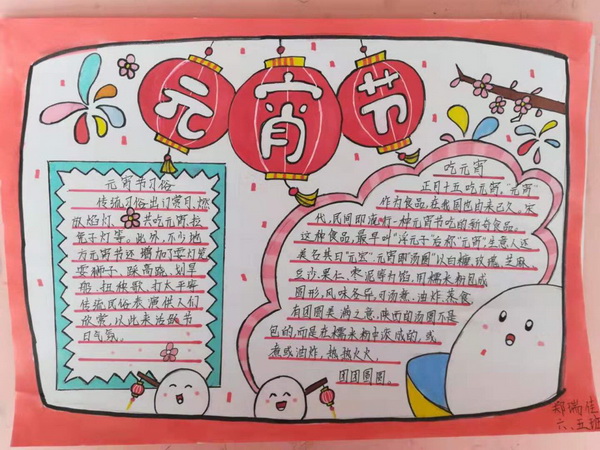 元宵节
元宵节习俗
传统习俗出门赏月、燃
放焰灯、共吃元宵、拉
兔子灯等。此外，不少地
方元宵节还增加了耍灯笼
耍狮子、踩高跷、划旱
船、扭秧歌、打太平
传统民俗表演供人们
欣赏，以此来活跃节
日气氛。
吃元宵
正月十五吃元宵，"元宵"
作为食品，在我国也由来已久。宋
代，民间即流行一种元宵节吃的新奇食品。
这种食品，最早叫"浮元子"后称"元宵"，生意人还
美名其曰"元宝"。元宵即"汤圆"以白糖、玫瑰、芝麻、
豆沙、果仁、枣泥等为馅，用糯米粉包成
圆形，风味各异，可汤煮、油炸、蒸食，
有团圆美满之意。陕西的汤圆不是
包的，而是在糯米粉中滚成的，或
煮或油炸，热热火火，
团团圆圆。
郑瑞佳
六、五班